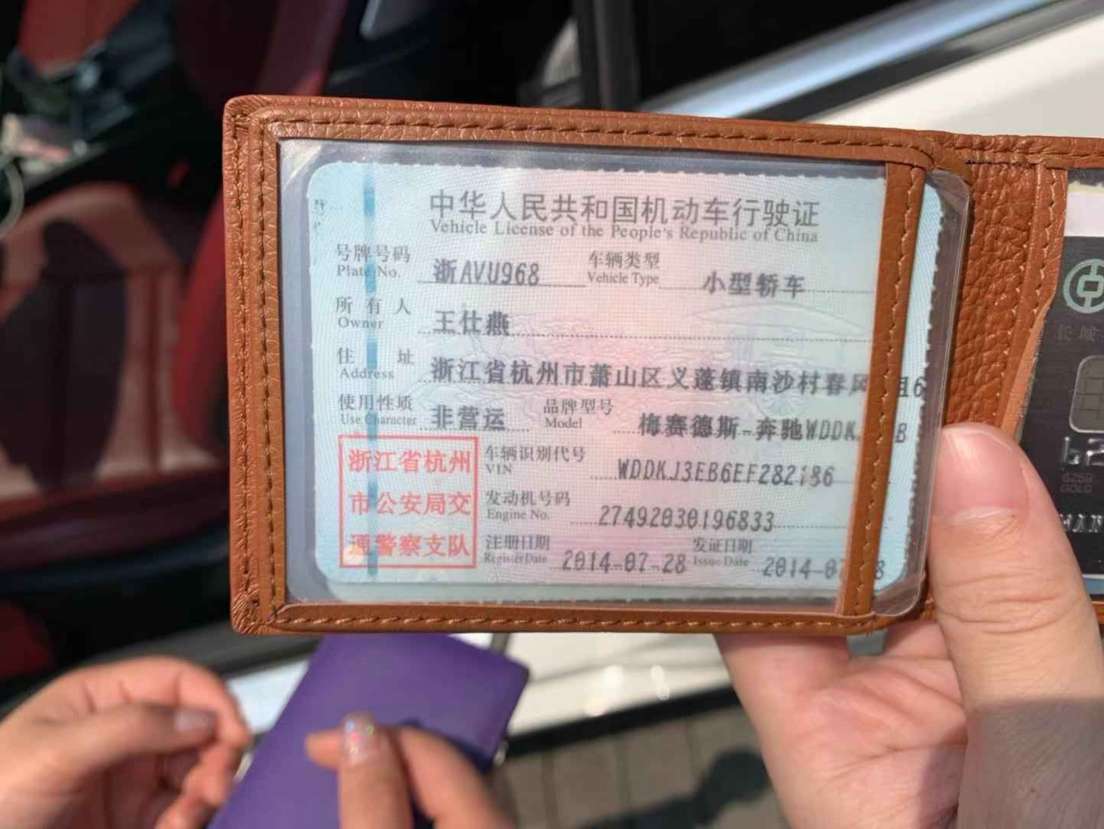 中华人民共和国机动车行驶证
Vehicle License of the People's Republic of China
号牌号码 浙AVU968 车辆类型 小型轿车
Plate No. Vehicle Type
所有人 王仕燕
Owner
住址 浙江省杭州市萧山区义蓬镇南沙村春风 组6
Address
使用性质 非营运 品牌型号 梅赛德斯-奔驰WDDK B
Use Character Model
浙江省杭州 车辆识别代号 WDDKJ3EB6EF282186
VIN
市公安局交 发动机号码 27492030196833
Engine No.
通警察支队 注册日期 2014-07-28 发证日期 2014-07 8
Register Date Issue Date
长城